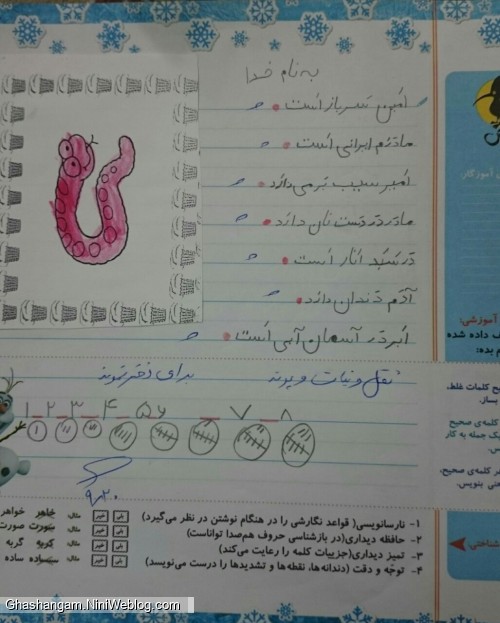 به نام خدا
امین سرباز است.
مادرم ایرانی است.
امیر سیب برمی دارد.
مادر در دست نان دارد.
در سبد انار است.
آدم دندان دارد.
ابر در آسمان آبی است.
نقل و نبات و پونه برای دخترتون
۱_۲_۳_۴_۵۶_۷_۸
۲۰
۱- نارسانویسی( قواعد نگارشی را در هنگام نوشتن در نظر می‌گیرد) مثال: خواهر
۲- حافظه دیداری(در بازشناسی حروف هم‌صدا تواناست) مثال: صورت
۳- تمیز دیداری(جزییات کلمه را رعایت می‌کند) مثال: گربه
۴- توجّه و دقت (دندانه‌ها، نقطه‌ها و تشدیدها را درست می‌نویسد) مثال: ساده
آموزگار
آموزشی:
داده شده
کلمات غلط،
بساز.
کلمه‌ی صحیح
یک جمله به کار
کلمه‌ی صحیح،
بنویس.
شناختی
Ghashangam.NiniWeblog.com